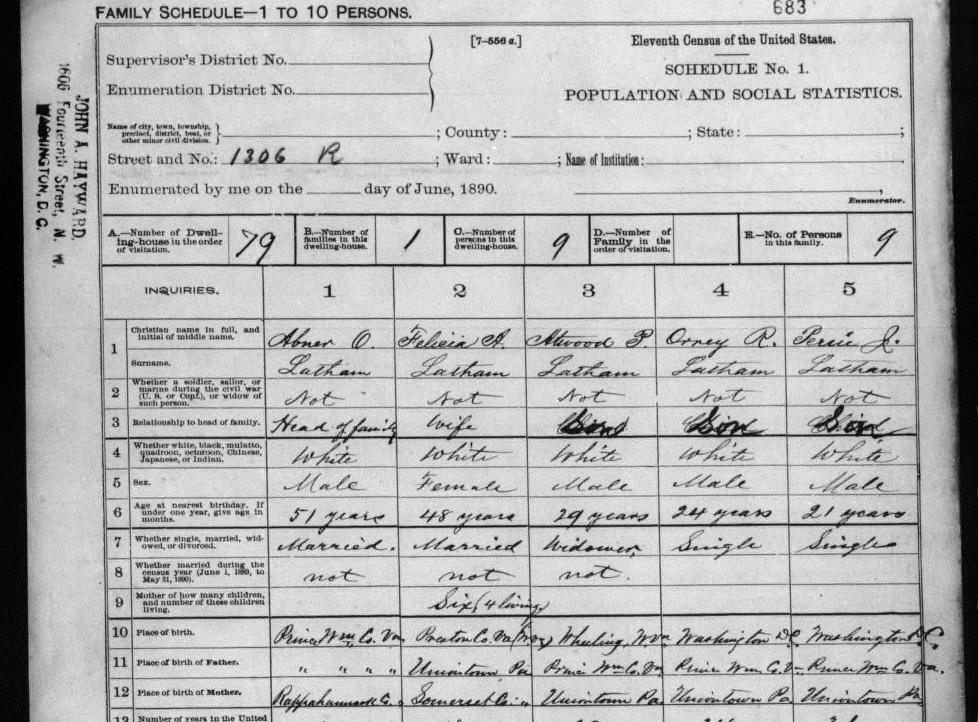 FAMILY SCHEDULE—1 TO 10 PERSONS.
683
[7-556 a.]
Eleventh Census of the United States.
SCHEDULE No. 1.
POPULATION AND SOCIAL STATISTICS.
Supervisor's District No.
Enumeration District No.
Name of city, town, township, precinct, district, beat, or other minor civil division.
; County: ; State: ;
Street and No.: 1306 R ; Ward: ; Name of Institution:
Enumerated by me on the day of June, 1890.
Enumerator.
JOHN A. HAYWARD,
1606 Fourteenth Street, N. W.
WASHINGTON, D. C.
A.—Number of Dwelling-house in the order of visitation. 79 B.—Number of families in this dwelling-house. 1 C.—Number of persons in this dwelling-house. 9 D.—Number of Family in the order of visitation. E.—No. of Persons in this family. 9
INQUIRIES. 1 2 3 4 5
1 Christian name in full, and initial of middle name. Abner O. Felicia A. Atwood P. Orney R. Persie J.
Surname. Latham Latham Latham Latham Latham
2 Whether a soldier, sailor, or marine during the civil war (U. S. or Conf.), or widow of such person. Not Not Not Not Not
3 Relationship to head of family. Head of family Wife Son Son Son
4 Whether white, black, mulatto, quadroon, octoroon, Chinese, Japanese, or Indian. White White White White White
5 Sex. Male Female Male Male Male
6 Age at nearest birthday. If under one year, give age in months. 51 years 48 years 29 years 24 years 21 years
7 Whether single, married, widowed, or divorced. Married. Married Widower, Single Single
8 Whether married during the census year (June 1, 1889, to May 31, 1890). not not not.
9 Mother of how many children, and number of these children living. Six (4 living)
10 Place of birth. Prince Wm Co. Va. Preston Co. Va (W.Va) Wheeling, W Va Washington D.C. Washington D.C.
11 Place of birth of Father. " " " " Uniontown, Pa Prince Wm Co. Va Prince Wm Co. Va Prince Wm Co. Va.
12 Place of birth of Mother. Rappahannock Co. Somerset Co. " Uniontown Pa. Uniontown Pa Uniontown Pa
13 Number of years in the United